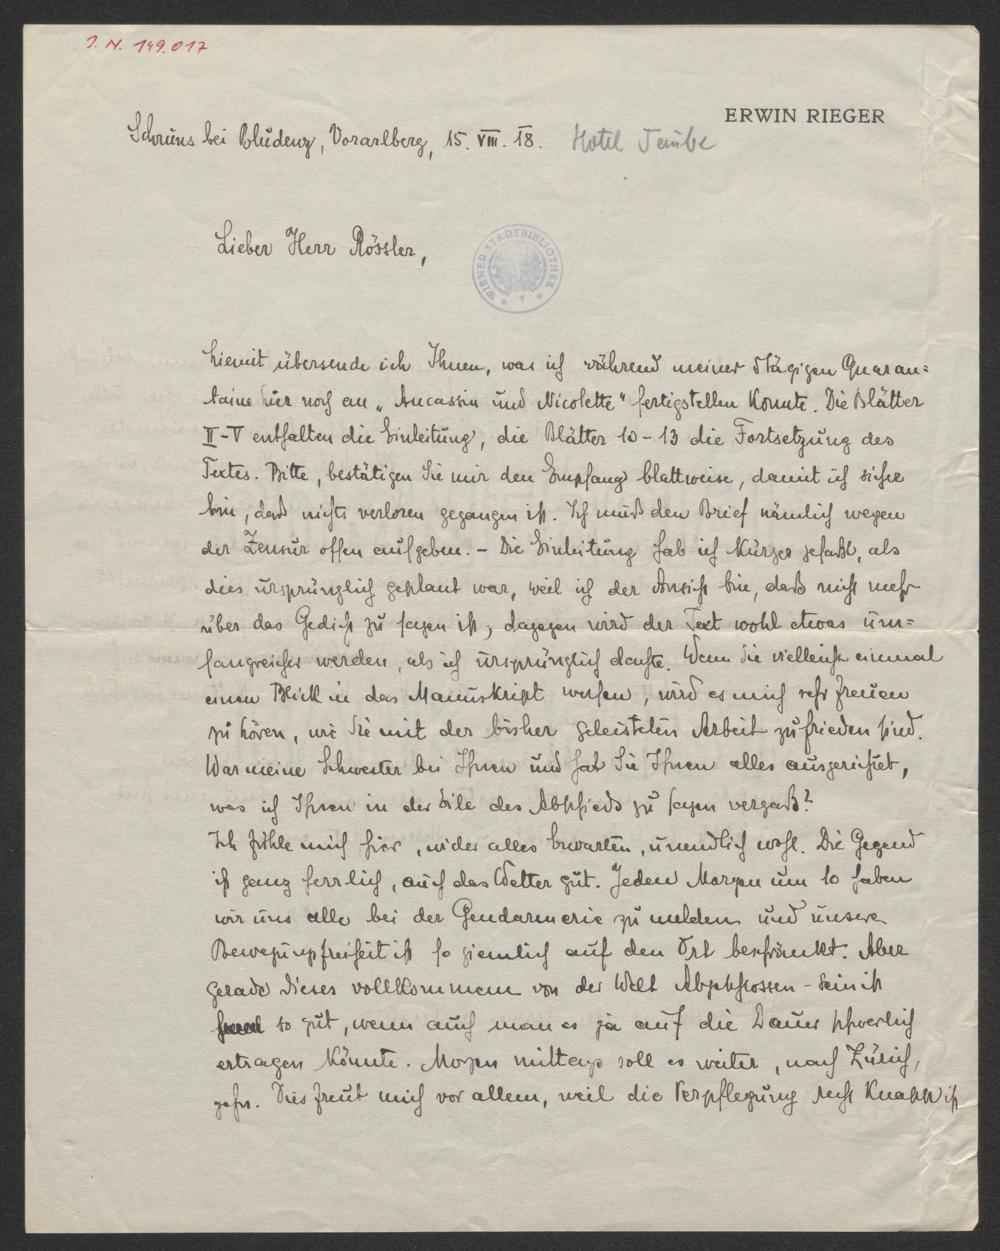 J. N. 149.017
ERWIN RIEGER
Schruns bei Bludenz, Vorarlberg, 15. VIII. 18. Hotel Taube
Lieber Herr Rössler,
WIENER STADTBIBLIOTHEK
hiemit übersende ich Ihnen, was ich während meiner 5tägigen Quaran-
taine hier noch an „Aucassin und Nicolette“ fertigstellen konnte. Die Blätter
II-V enthalten die Einleitung, die Blätter 10-13 die Fortsetzung des
Textes. Bitte, bestätigen Sie mir den Empfang blattweise, damit ich sicher
bin, daß nichts verloren gegangen ist. Ich muß den Brief nämlich wegen
der Zensur offen aufgeben. - Die Einleitung hab ich kürzer gefaßt, als
dies ursprünglich geplant war, weil ich der Ansicht bin, daß nicht mehr
über das Gedicht zu sagen ist; dagegen wird der Text wohl etwas um-
fangreicher werden, als ich ursprünglich dachte. Wenn Sie vielleicht einmal
einen Blick in das Manuskript werfen, wird es mich sehr freuen
zu hören, wie Sie mit der bisher geleisteten Arbeit zufrieden sind.
War meine Schwester bei Ihnen und hat Sie Ihnen alles ausgerichtet,
was ich Ihnen in der Eile des Abschieds zu sagen vergaß?
Ich fühle mich hier, wider alles Erwarten, unendlich wohl. Die Gegend
ist ganz herrlich, auch das Wetter gut. Jeden Morgen um 10 haben
wir uns alle bei der Gendarmerie zu melden und unsere
Bewegungsfreiheit ist so ziemlich auf den Ort beschränkt. Aber
gerade dieses vollkommen von der Welt Abgeschlossen-sein ist
so gut, wenn auch man es ja auf die Dauer schwerlich
ertragen könnte. Morgen mittags soll es weiter, nach Zürich,
gehn. Dies freut mich vor allem, weil die Verpflegung recht knapp ist